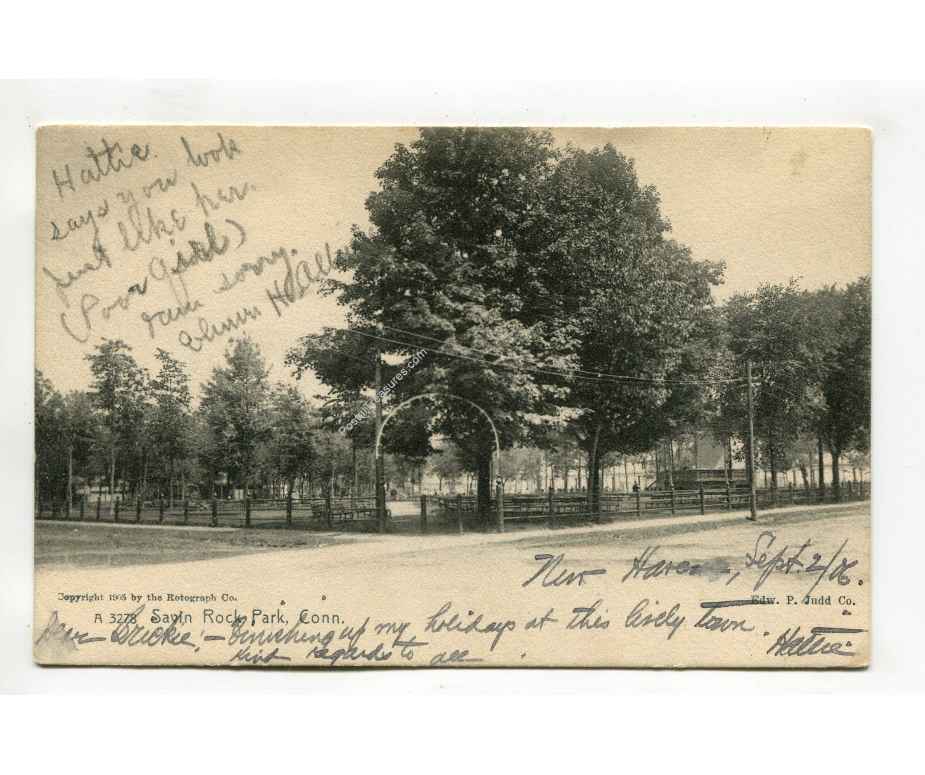 Hattie.
says you look
just like her.
(Poor Girl)
sorry.
Elmer
New Haven, Sept 2/06.
Copyright 1905 by the Rotograph Co.
Edw. P. Judd Co.
A 3278 Savin Rock Park, Conn.
Dear - Finishing up my holidays at this lively town.
Kind regards to all - Hattie